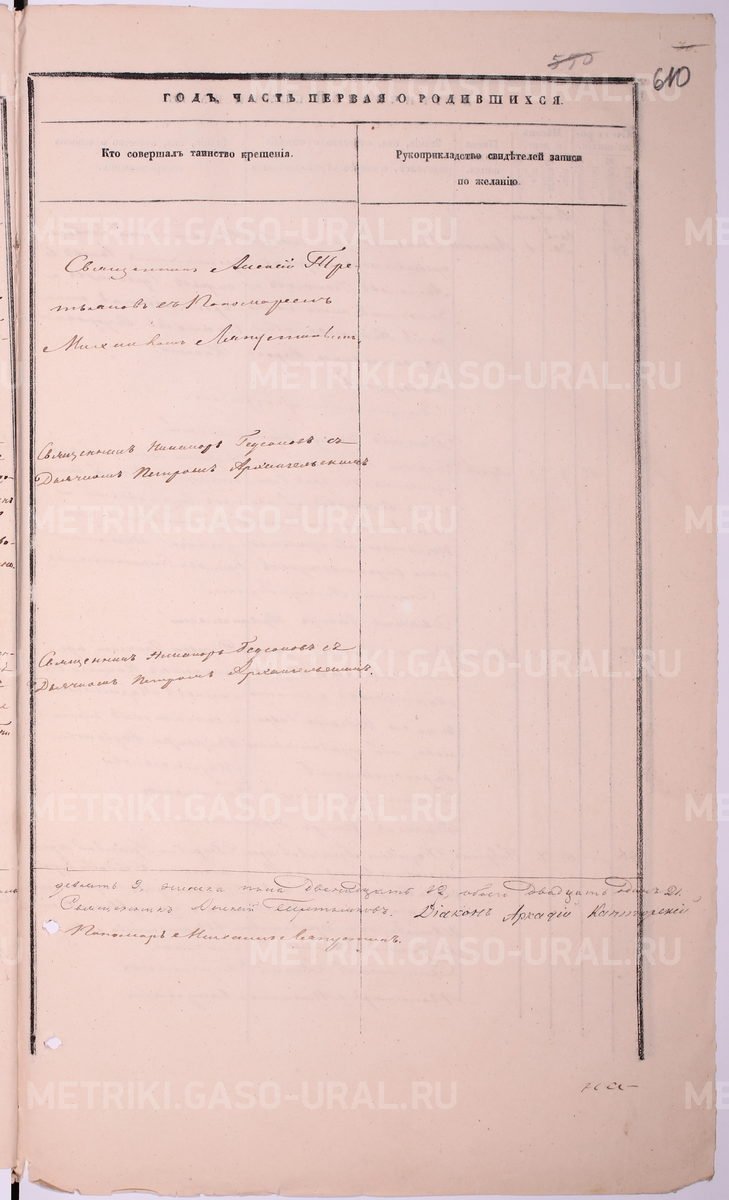 550
610
ГОДЪ, ЧАСТЬ ПЕРВАЯ О РОДИВШИХСЯ.
Кто совершалъ таинство крещенія.
Рукоприкладство свидѣтелей записи
по желанію.
Священникъ Алексѣй Тре-
тьяковъ съ Пономаремъ
Михаиломъ Лапустинымъ.
Священникъ Никаноръ съ
Дьячкомъ Петромъ Архангельскимъ
Священникъ Никаноръ съ
Дьячкомъ Петромъ Архангельскимъ.
девять 9, женска пола двенадцать 12, обоего двадцать одинъ 21.
Священникъ Алексѣй Третьяковъ. Діаконъ Аркадій
Пономарь Михаилъ Лапустинъ.
METRIKI.GASO-URAL.RU